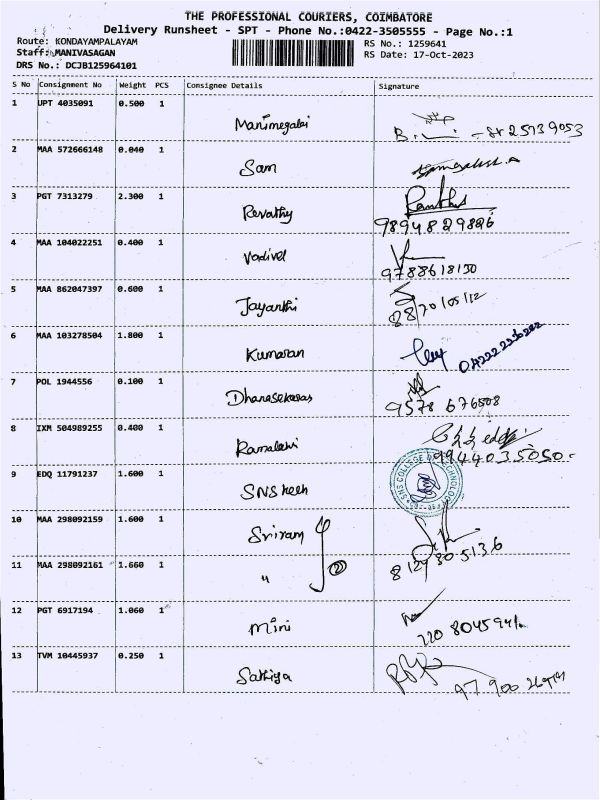 THE PROFESSIONAL COURIERS, COIMBATORE
Delivery Runsheet - SPT - Phone No.:0422-3505555 - Page No.:1
Route: KONDAYAMPALAYAM
Staff: MANIVASAGAN
DRS No.: DCJB125964101
RS No.: 1259641
RS Date: 17-Oct-2023
S No Consignment No Weight PCS Consignee Details Signature
1 UPT 4035091 0.500 1 Manimegalai
2 MAA 572666148 0.040 1 Sam
3 PGT 7313279 2.300 1 Revathy
9894829826
4 MAA 104022251 0.400 1 Vadivel
9788618150
5 MAA 862047397 0.600 1 Jayanthi
6 MAA 103278504 1.800 1 Kumaran
7 POL 1944556 0.100 1 Dhanasekaran
9578 676508
8 IXM 504989255 0.400 1
9944035050
9 EDQ 11791237 1.600 1 SNS
SNS COLLEGE OF TECHNOLOGY
10 MAA 298092159 1.600 1 Sriram
11 MAA 298092161 1.660 1 " 2
8129805136
12 PGT 6917194 1.060 1 Mini
13 TVM 10445937 0.250 1 Sathiya